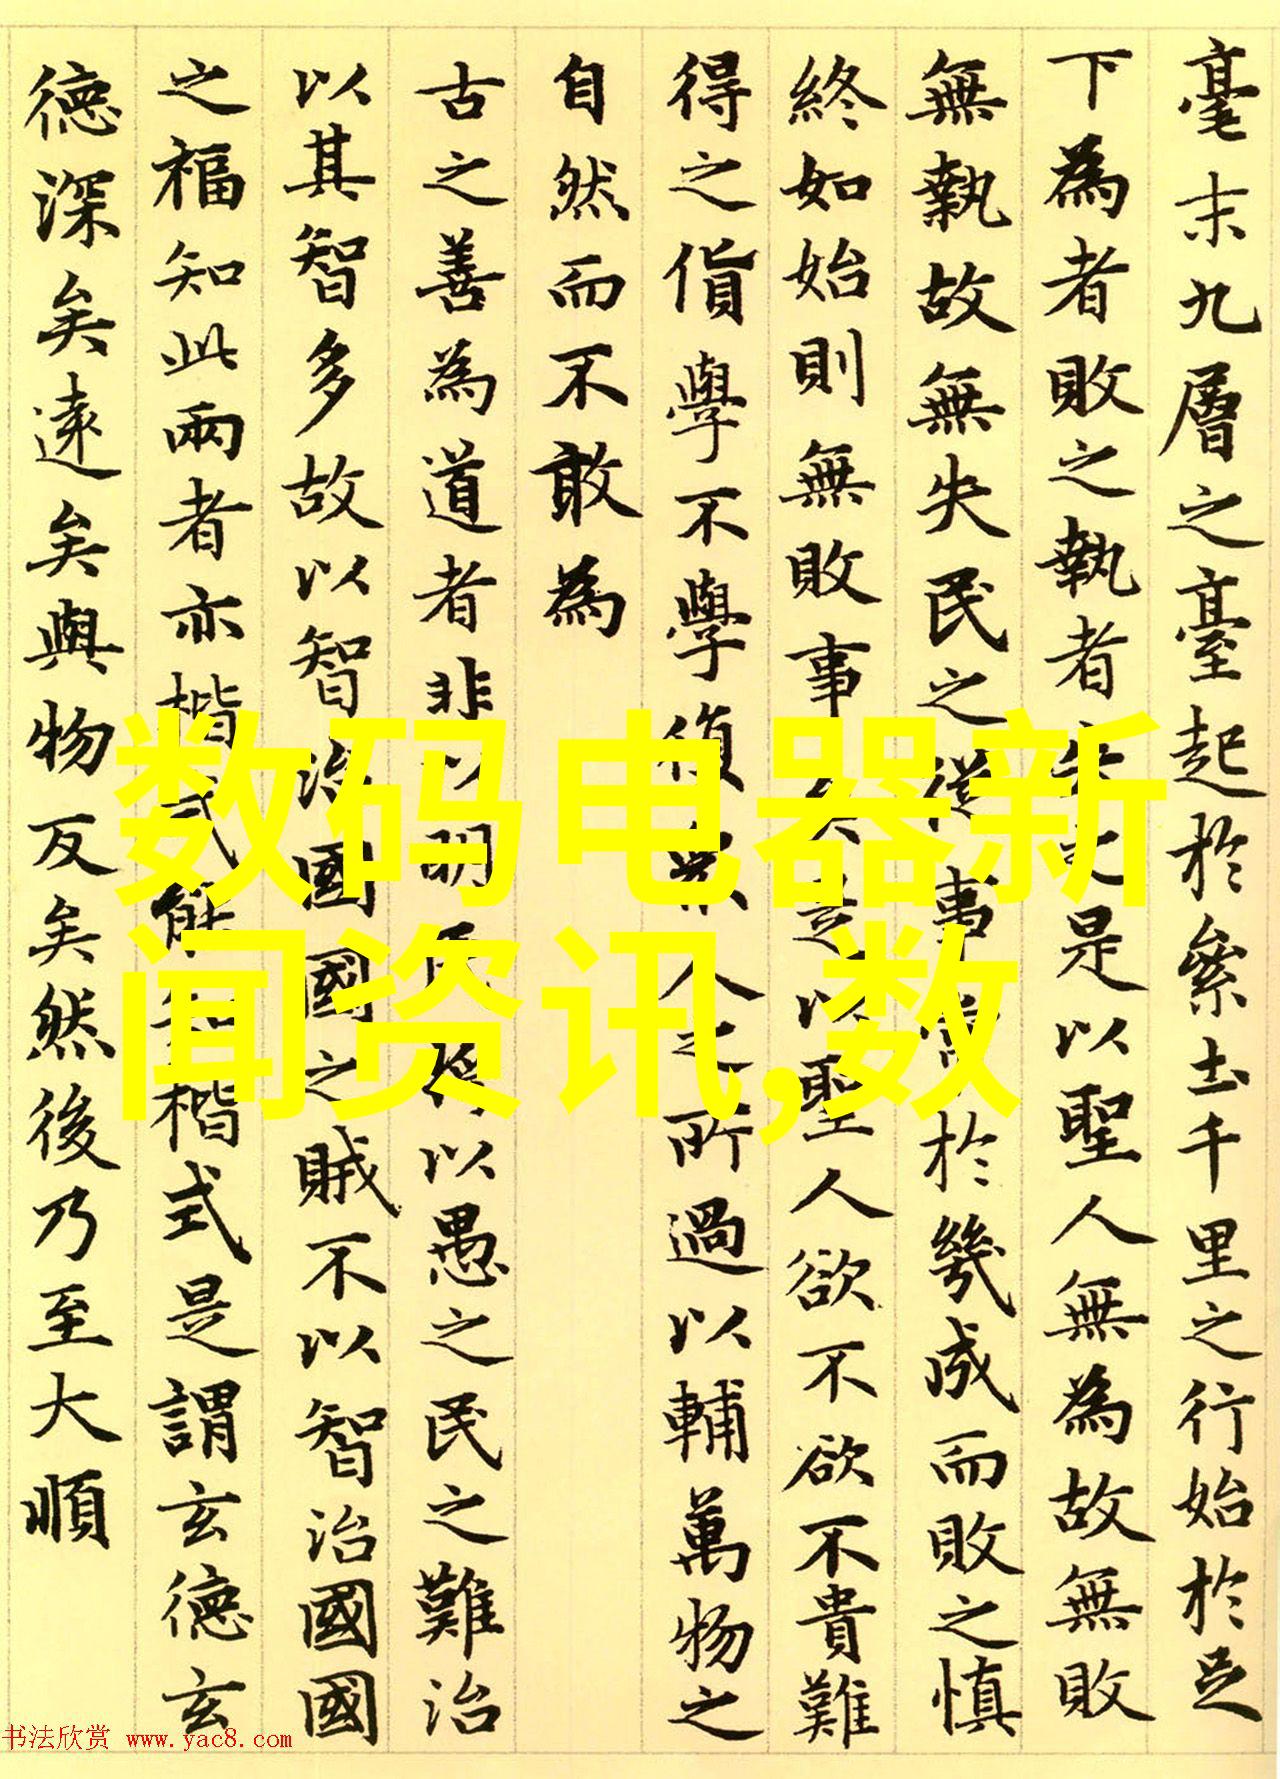 毫末九層之臺起於絫土千里之行始於足
下為者敗之執者失之是以聖人無為故無敗
無執故無失民之從事常於幾成而敗之慎
終如始則無敗事矣是以聖人欲不欲不貴難
得之貨學不學復衆人之所過以輔萬物之
自然而不敢為
古之善為道者非以明民將以愚之民之難治
以其智多故以智治國國之賊不以智治國國
之福知此兩者亦楷式能知楷式是謂玄德玄
德深矣遠矣與物反矣然後乃至大順
数码电器新
闻资讯,数
书法欣赏 www.yac8.com